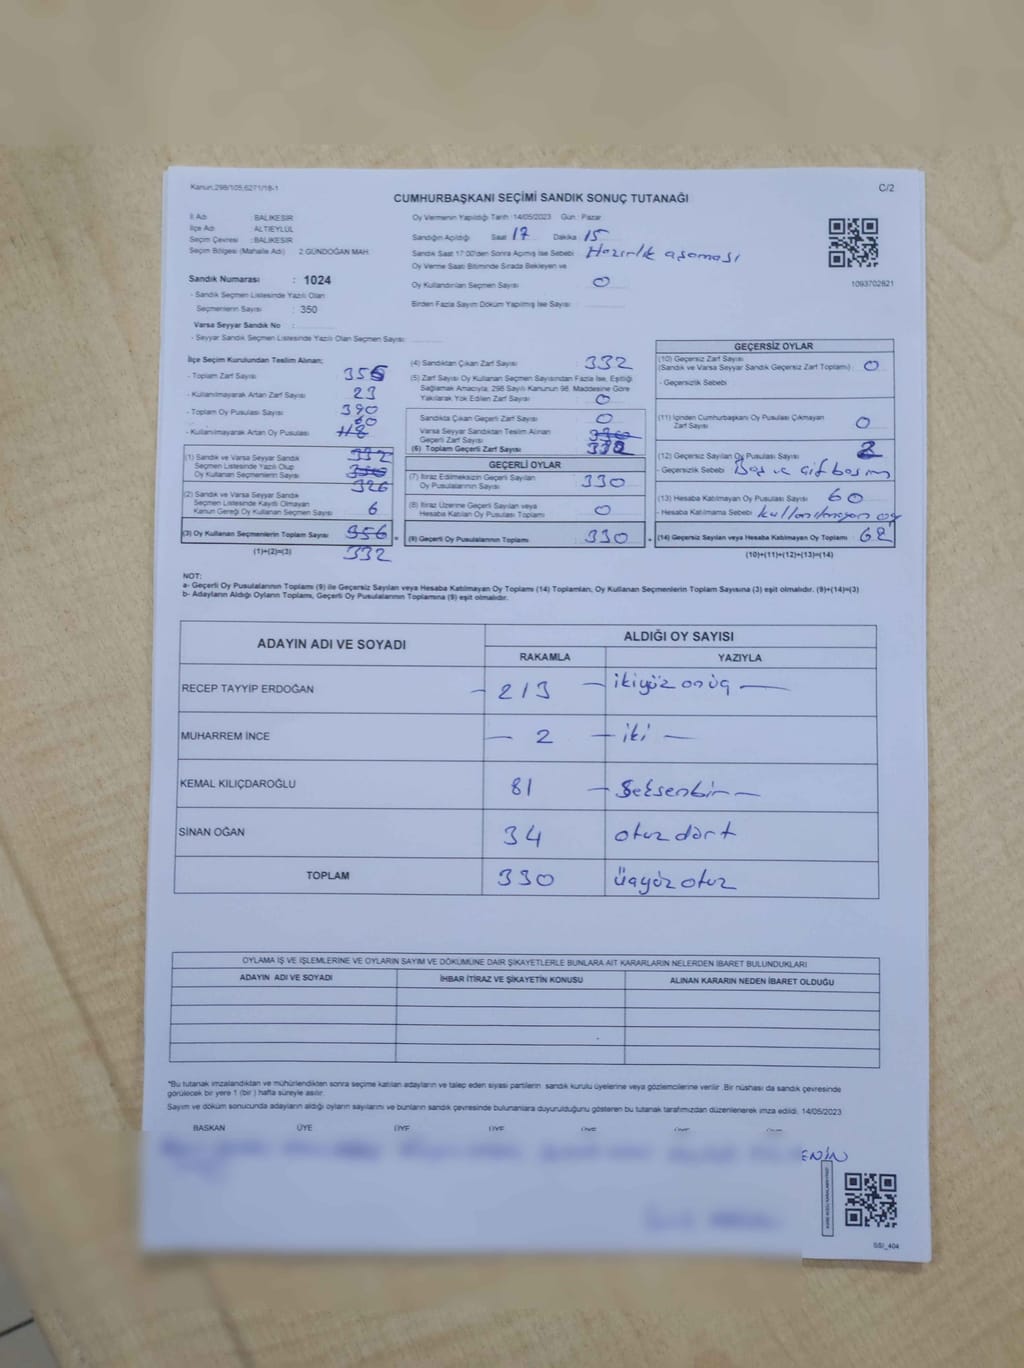 Kanun,298/105,6271/18-1
C/2
CUMHURBAŞKANI SEÇİMİ SANDIK SONUÇ TUTANAĞI
İl Adı : BALIKESİR
İlçe Adı : ALTIEYLÜL
Seçim Çevresi : BALIKESİR
Seçim Bölgesi (Mahalle Adı) 2.GÜNDOĞAN MAH.
Sandık Numarası : 1024
- Sandık Seçmen Listesinde Yazılı Olan
Seçmenlerin Sayısı : 350
Varsa Seyyar Sandık No :
- Seyyar Sandık Seçmen Listesinde Yazılı Olan Seçmen Sayısı :
Oy Vermenin Yapıldığı Tarih :14/05/2023 Gün : Pazar
Sandığın Açıldığı Saat 17 Dakika 15
Sandık Saat 17:00'den Sonra Açılmış İse Sebebi Hazırlık aşaması
Oy Verme Saati Bitiminde Sırada Bekleyen ve
Oy Kullandırılan Seçmen Sayısı : 0
Birden Fazla Sayım Döküm Yapılmış İse Sayısı :
1093702821
İlçe Seçim Kurulundan Teslim Alınan;
- Toplam Zarf Sayısı : 355
- Kullanılmayarak Artan Zarf Sayısı : 23
- Toplam Oy Pusulası Sayısı : 390
60
- Kullanılmayarak Artan Oy Pusulası :
(1) Sandık ve Varsa Seyyar Sandık
Seçmen Listesinde Yazılı Olup
Oy Kullanan Seçmenlerin Sayısı
332
350
326
(2) Sandık ve Varsa Seyyar Sandık
Seçmen Listesinde Kayıtlı Olmayan
Kanun Gereği Oy Kullanan Seçmen Sayısı 6
(3) Oy Kullanan Seçmenlerin Toplam Sayısı 356 =
(1)+(2)=(3) 332
(4) Sandıktan Çıkan Zarf Sayısı : 332
(5) Zarf Sayısı Oy Kullanan Seçmen Sayısından Fazla İse, Eşitliği
Sağlamak Amacıyla; 298 Sayılı Kanunun 98. Maddesine Göre
Yakılarak Yok Edilen Zarf Sayısı : 0
Sandıkta Çıkan Geçerli Zarf Sayısı : 0
Varsa Seyyar Sandıktan Teslim Alınan
Geçerli Zarf Sayısı :
(6) Toplam Geçerli Zarf Sayısı : 332
GEÇERLİ OYLAR
(7) İtiraz Edilmeksizin Geçerli Sayılan
Oy Pusulalarının Sayısı : 330
(8) İtiraz Üzerine Geçerli Sayılan veya
Hesaba Katılan Oy Pusulası Toplamı : 0
(9) Geçerli Oy Pusulalarının Toplamı : 330
GEÇERSİZ OYLAR
(10) Geçersiz Zarf Sayısı
(Sandık ve Varsa Seyyar Sandık Geçersiz Zarf Toplamı) : 0
- Geçersizlik Sebebi
(11) İçinden Cumhurbaşkanı Oy Pusulası Çıkmayan
Zarf Sayısı : 0
(12) Geçersiz Sayılan Oy Pusulası Sayısı : 2
- Geçersizlik Sebebi : Boş ve çift basım
(13) Hesaba Katılmayan Oy Pusulası Sayısı : 60
- Hesaba Katılmama Sebebi : kullanılmayan oy
(14) Geçersiz Sayılan veya Hesaba Katılmayan Oy Toplamı : 62
(10)+(11)+(12)+(13)=(14)
NOT:
a- Geçerli Oy Pusulalarının Toplamı (9) ile Geçersiz Sayılan veya Hesaba Katılmayan Oy Toplamı (14) Toplamları, Oy Kullanan Seçmenlerin Toplam Sayısına (3) eşit olmalıdır. (9)+(14)=(3)
b- Adayların Aldığı Oyların Toplamı, Geçerli Oy Pusulalarının Toplamına (9) eşit olmalıdır.
ADAYIN ADI VE SOYADI ALDIĞI OY SAYISI
RAKAMLA YAZIYLA
RECEP TAYYİP ERDOĞAN - 213 - ikiyüz onüç -
MUHARREM İNCE - 2 - iki -
KEMAL KILIÇDAROĞLU 81 - Seksenbir -
SİNAN OĞAN 34 otuz dört
TOPLAM 330 üçyüz otuz
OYLAMA İŞ VE İŞLEMLERİNE VE OYLARIN SAYIM VE DÖKÜMÜNE DAİR ŞİKAYETLERLE BUNLARA AİT KARARLARIN NELERDEN İBARET BULUNDUKLARI
ADAYIN ADI VE SOYADI İHBAR İTİRAZ VE ŞİKAYETİN KONUSU ALINAN KARARIN NEDEN İBARET OLDUĞU
*Bu tutanak imzalandıktan ve mühürlendikten sonra seçime katılan adayların ve talep eden siyasi partilerin sandık kurulu üyelerine veya gözlemcilerine verilir. Bir nüshası da sandık çevresinde
görülecek bir yere 1 (bir ) hafta süreyle asılır.
Sayım ve döküm sonucunda adayların aldığı oyların sayılarını ve bunların sandık çevresinde bulunanlara duyurulduğunu gösteren bu tutanak tarafımızdan düzenlenerek imza edildi. 14/05/2023
BAŞKAN ÜYE ÜYE ÜYE ÜYE ÜYE ÜYE
SSİ_404